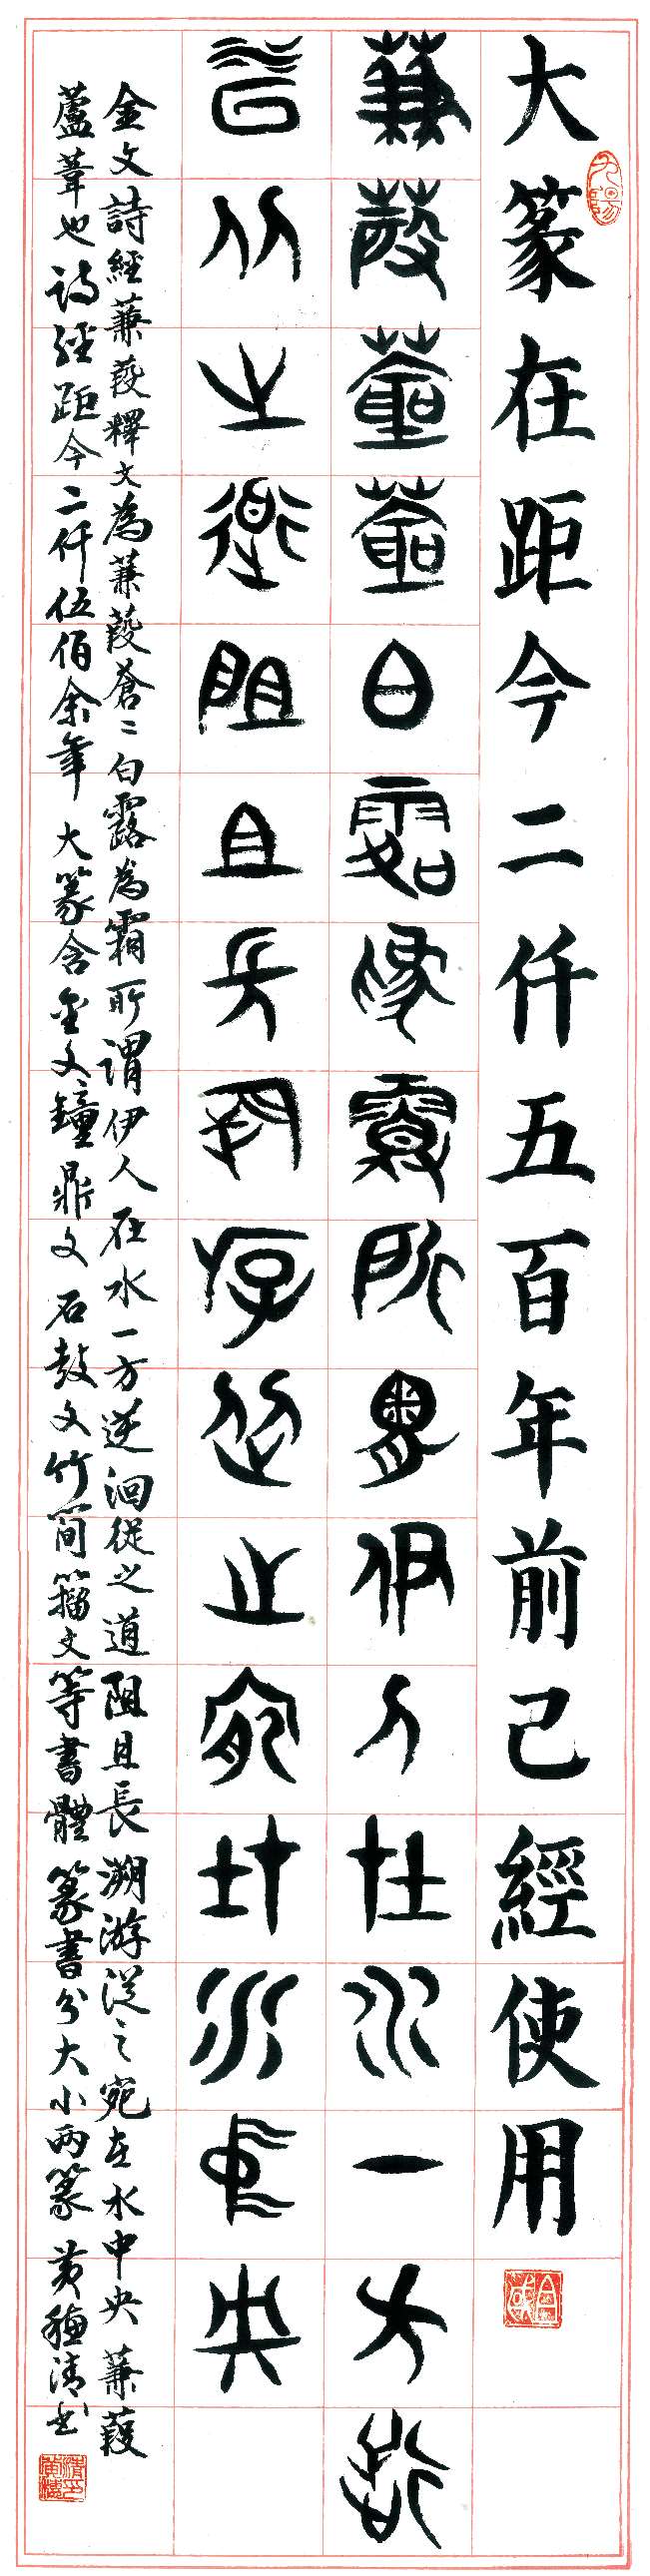 大篆在距今二仟五百年前已經使用
蒹葭蒼蒼白露為霜所謂伊人在水一方逆
洄從之道阻且長溯游從之宛在水中央
金文詩經蒹葭釋文為蒹葭蒼〻白露為霜所謂伊人在水一方逆洄從之道阻且長溯游從之宛在水中央蒹葭
蘆葦也詩經距今二仟伍佰余年大篆含金文鐘鼎文石鼓文竹简籀文等書體篆書分大小两篆黄穗清书